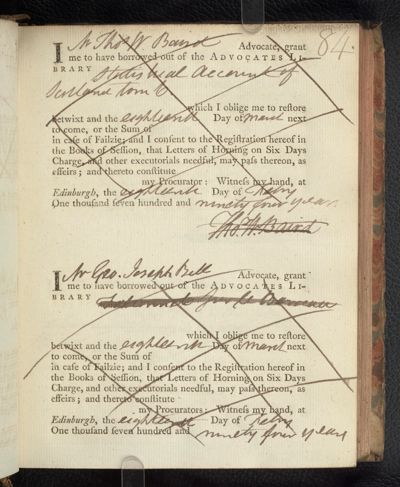 84.
I Mr Thos W Baird Advocate, grant
me to have borrowed out of the ADVOCATES LI-
BRARY Statistical Account of
Scotland tom 6
which I oblige me to reſtore
betwixt and the eighteenth Day of March next
to come, or the Sum of
in caſe of Failzie; and I conſent to the Regiſtration hereof in
the Books of Seſſion, that Letters of Horning on Six Days
Charge, and other executorials needful, may paſs thereon, as
effeirs; and thereto conſtitute
my Procurator: Witneſs my hand, at
Edinburgh, the eighteenth Day of Febry
One thouſand ſeven hundred and ninety four years
Tho. W. Baird
I Mr Geo. Joseph Bell Advocate, grant
me to have borrowed out of the ADVOCATES LI-
BRARY
which I oblige me to reſtore
betwixt and the eighteenth Day of March next
to come, or the Sum of
in caſe of Failzie; and I conſent to the Regiſtration hereof in
the Books of Seſſion, that Letters of Horning on Six Days
Charge, and other executorials needful, may paſs thereon, as
effeirs; and thereto conſtitute
my Procurators: Witneſs my hand, at
Edinburgh, the eighteenth Day of Febry
One thouſand ſeven hundred and ninety four years